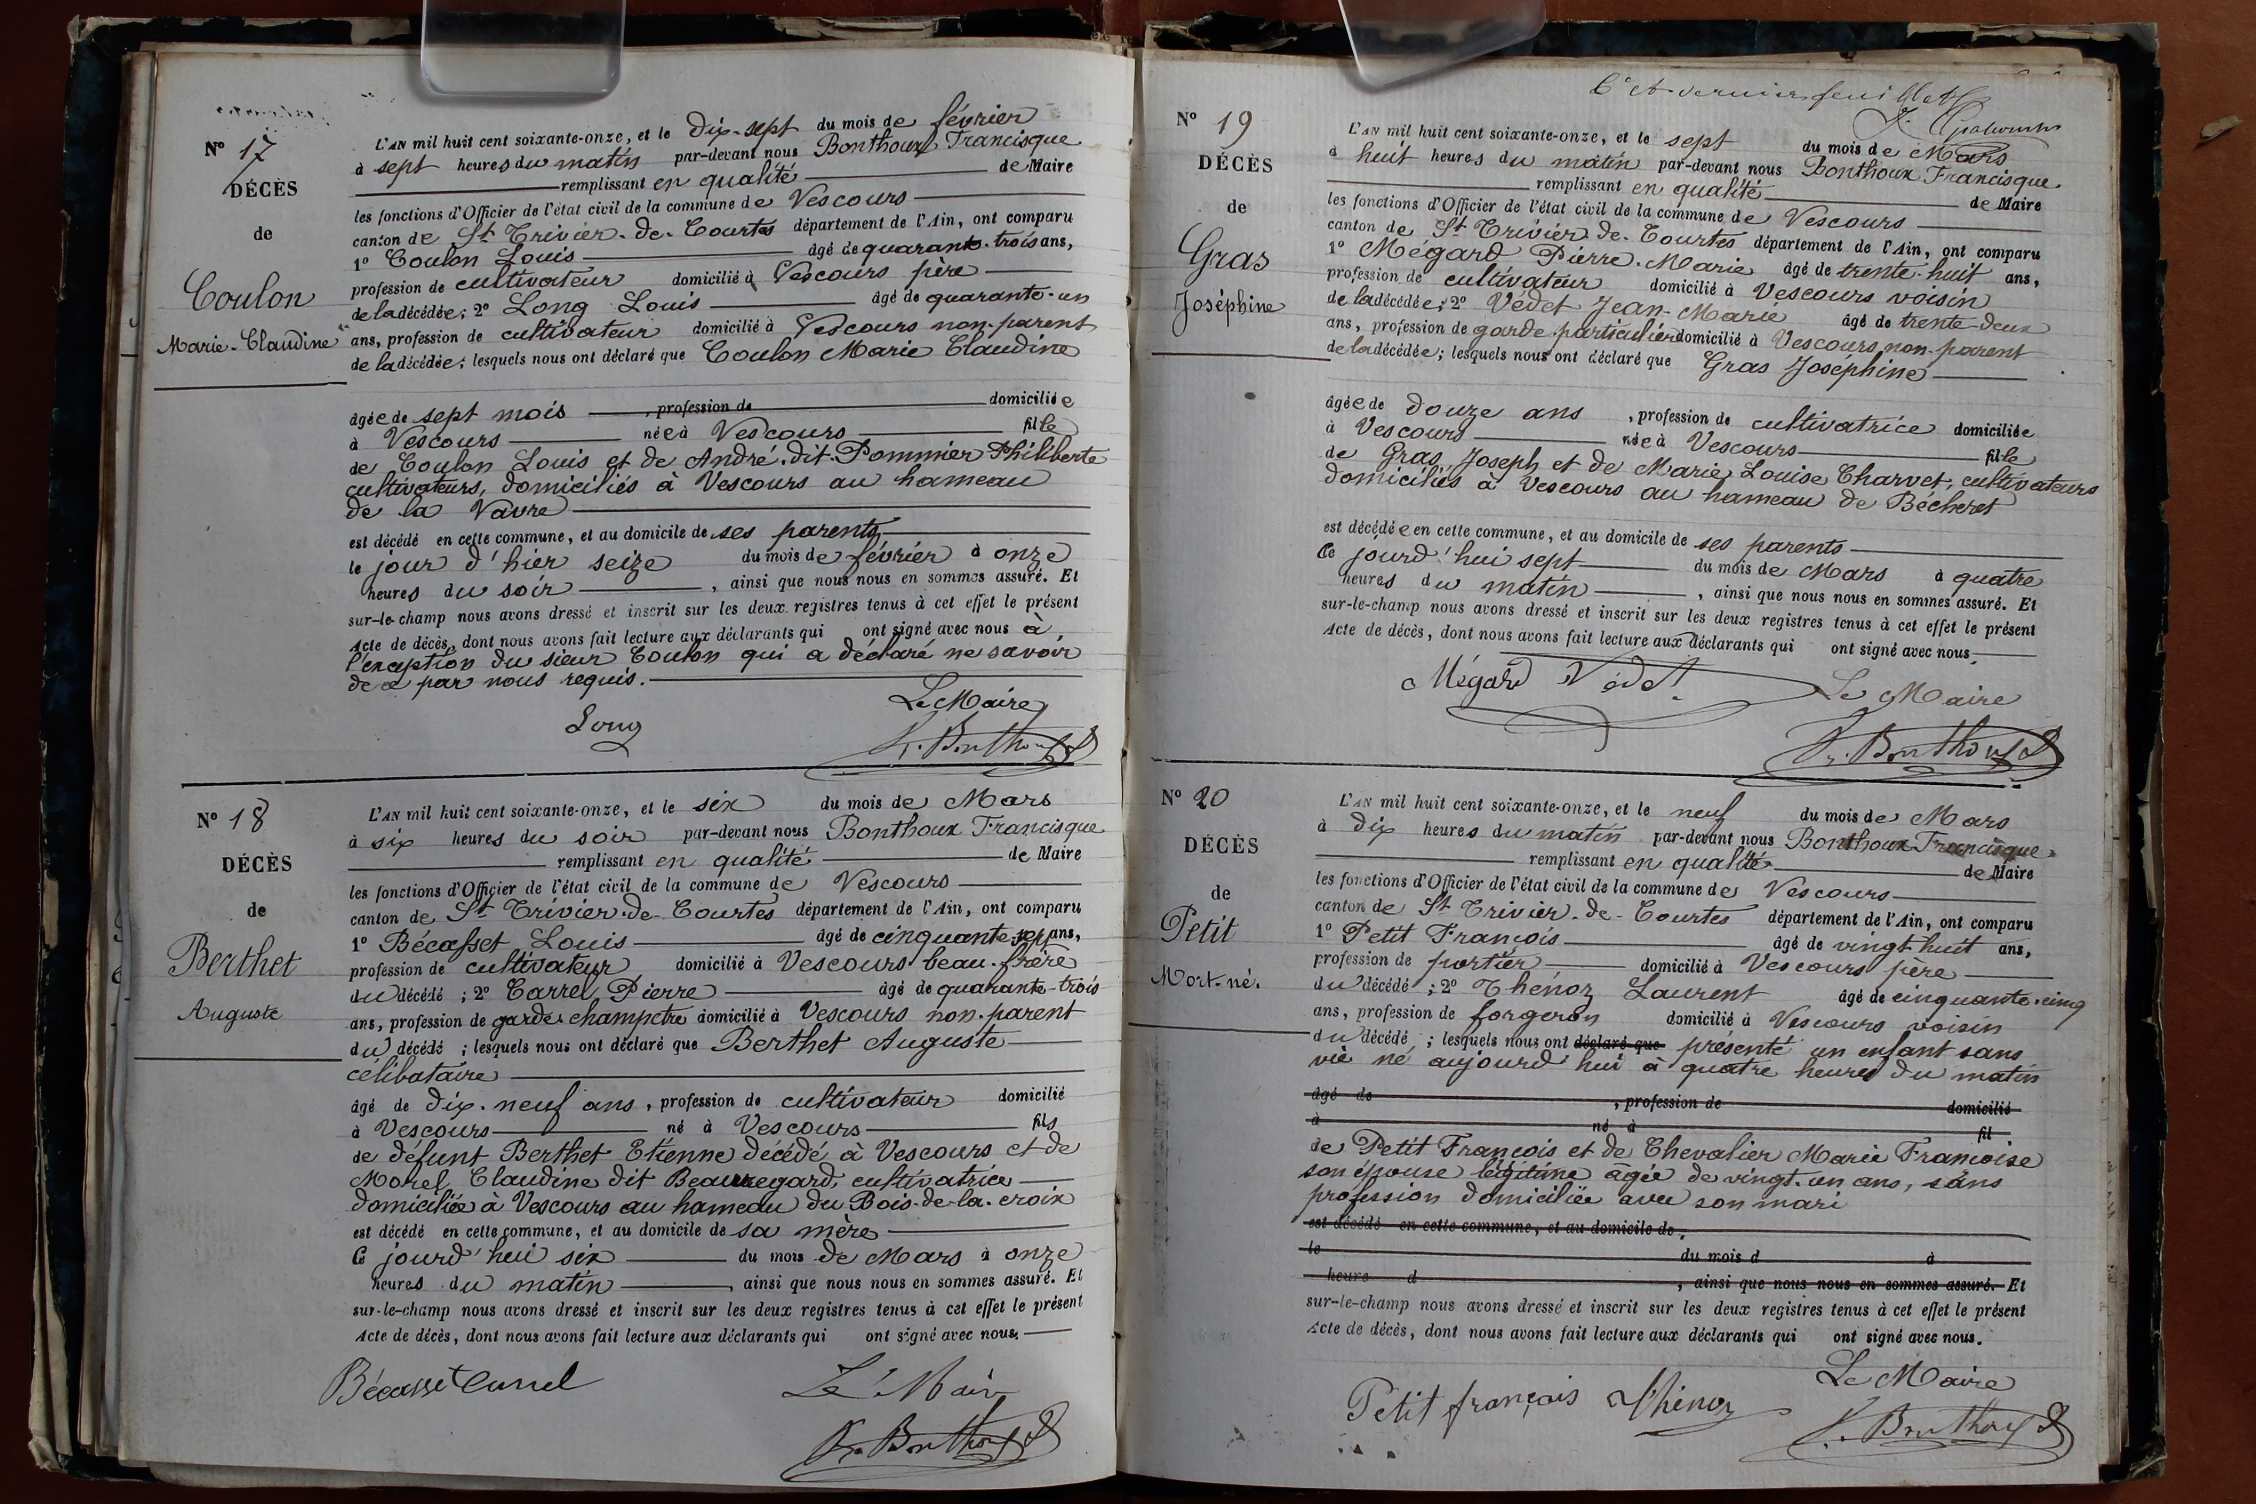 Nº 17
DÉCÈS
de
Coulon
Marie-Claudine
L'AN mil huit cent soixante-onze, et le dix-sept du mois de février
à sept heures du matin par-devant nous Bonthoux Francisque
remplissant en qualité de Maire
les fonctions d'Officier de l'état civil de la commune de Vescours
canton de St Trivier-de-Courtes département de l'Ain, ont comparu
1º Coulon Louis âgé de quarante-trois ans,
profession de cultivateur domicilié à Vescours père
de la décédée; 2º Long Louis âgé de quarante-un
ans, profession de cultivateur domicilié à Vescours non-parent
de la décédée; lesquels nous ont déclaré que Coulon Marie Claudine
âgée de sept mois, profession de domiciliée
à Vescours née à Vescours fille
de Coulon Louis et de André-dit-Pommier Philiberte
cultivateurs, domiciliés à Vescours au hameau
de la Vavre
est décédé en cette commune, et au domicile de ses parents
le jour d'hier seize du mois de février à onze
heures du soir, ainsi que nous nous en sommes assuré. Et
sur-le-champ nous avons dressé et inscrit sur les deux registres tenus à cet effet le présent
Acte de décès, dont nous avons fait lecture aux déclarants qui ont signé avec nous à
l'exception du sieur Coulon qui a déclaré ne savoir
de ce par nous requis.
Le Maire
Long
F. Bonthoux
Nº 18
DÉCÈS
de
Berthet
Auguste
L'AN mil huit cent soixante-onze, et le six du mois de Mars
à six heures du soir par-devant nous Bonthoux Francisque
remplissant en qualité de Maire
les fonctions d'Officier de l'état civil de la commune de Vescours
canton de St Trivier-de-Courtes département de l'Ain, ont comparu
1º Bécasset Louis âgé de cinquante sept ans,
profession de cultivateur domicilié à Vescours beau-frère
du décédé; 2º Carrel Pierre âgé de quarante-trois
ans, profession de garde champetre domicilié à Vescours non-parent
du décédé; lesquels nous ont déclaré que Berthet Auguste
célibataire
âgé de dix-neuf ans, profession de cultivateur domicilié
à Vescours né à Vescours fils
de défunt Berthet Etienne décédé à Vescours et de
Morel Claudine dit Beauregard, cultivatrice
domiciliée à Vescours au hameau du Bois-de-la-croix
est décédé en cette commune, et au domicile de sa mère
Ce jourd'hui six du mois de Mars à onze
heures du matin, ainsi que nous nous en sommes assuré. Et
sur-le-champ nous avons dressé et inscrit sur les deux registres tenus à cet effet le présent
Acte de décès, dont nous avons fait lecture aux déclarants qui ont signé avec nous.
Bécasset Carrel
Le Maire
F. Bonthoux
6e et dernier feuillet
Nº 19
DÉCÈS
de
Gras
Joséphine
L'AN mil huit cent soixante-onze, et le sept du mois de Mars
à huit heures du matin par-devant nous Bonthoux Francisque
remplissant en qualité de Maire
les fonctions d'Officier de l'état civil de la commune de Vescours
canton de St Trivier-de-Courtes département de l'Ain, ont comparu
1º Mégard Pierre-Marie âgé de trente-huit ans,
profession de cultivateur domicilié à Vescours voisin
de la décédée; 2º Védet Jean-Marie âgé de trente-deux
ans, profession de garde particulier domicilié à Vescours non-parent
de la décédée; lesquels nous ont déclaré que Gras Joséphine
âgée de douze ans, profession de cultivatrice domiciliée
à Vescours née à Vescours fille
de Gras Joseph et de Marie Louise Charvet, cultivateurs
domiciliés à Vescours au hameau de Bécheret
est décédée en cette commune, et au domicile de ses parents
Ce jourd'hui sept du mois de Mars à quatre
heures du matin, ainsi que nous nous en sommes assuré. Et
sur-le-champ nous avons dressé et inscrit sur les deux registres tenus à cet effet le présent
Acte de décès, dont nous avons fait lecture aux déclarants qui ont signé avec nous.
Mégard Védet
Le Maire
F. Bonthoux
Nº 20
DÉCÈS
de
Petit
Mort-né.
L'AN mil huit cent soixante-onze, et le neuf du mois de Mars
à dix heures du matin par-devant nous Bonthoux Francisque
remplissant en qualité de Maire
les fonctions d'Officier de l'état civil de la commune de Vescours
canton de St Trivier-de-Courtes département de l'Ain, ont comparu
1º Petit François âgé de vingt huit ans,
profession de portier domicilié à Vescours père
du décédé; 2º Thénoz Laurent âgé de cinquante-cinq
ans, profession de forgeron domicilié à Vescours voisin
du décédé; lesquels nous ont déclaré que présenté un enfant sans
vie né aujourd'hui à quatre heures du matin
âgé de, profession de domicilié
à né à fil
de Petit François et de Chevalier Marie Françoise
son épouse légitime âgée de vingt-un ans, sans
profession domiciliée avec son mari
est décédé en cette commune, et au domicile de
le du mois d à
heure d, ainsi que nous nous en sommes assuré. Et
sur-le-champ nous avons dressé et inscrit sur les deux registres tenus à cet effet le présent
Acte de décès, dont nous avons fait lecture aux déclarants qui ont signé avec nous.
Le Maire
Petit françois Thénoz
F. Bonthoux